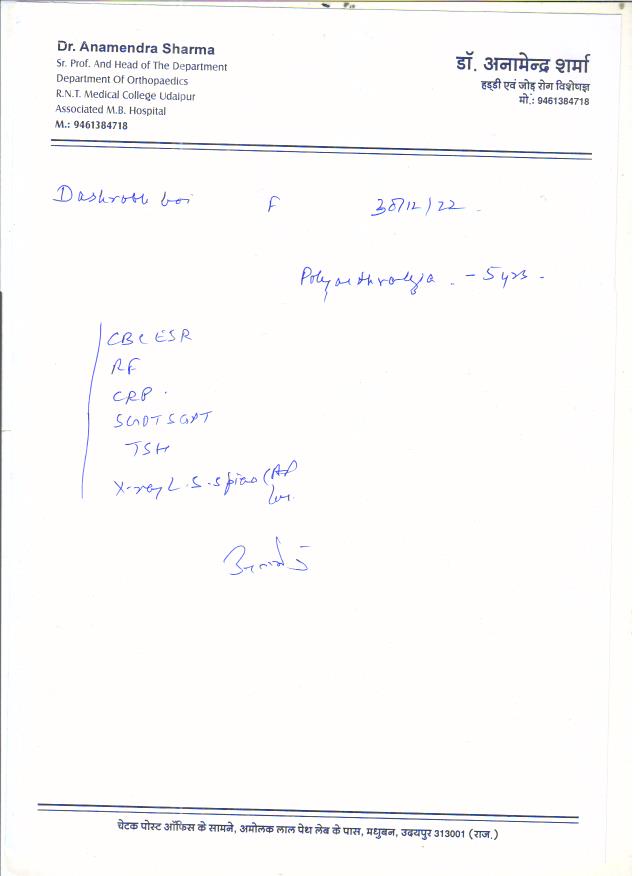 Dr. Anamendra Sharma
Sr. Prof. And Head of The Department
Department Of Orthopaedics
R.N.T. Medical College Udaipur
Associated M.B. Hospital
M.: 9461384718
डॉ. अनामेन्द्र शर्मा
हड्डी एवं जोड़ रोग विशेषज्ञ
मो.: 9461384718
F
30/12/22
Polyarthralgia - 5 yrs
CBC ESR
RF
CRP
SGOT SGPT
TSH
X-ray L.S. Spine (AP
चेटक पोस्ट ऑफिस के सामने, अमोलक लाल पेथ लेब के पास, मधुबन, उदयपुर 313001 (राज.)